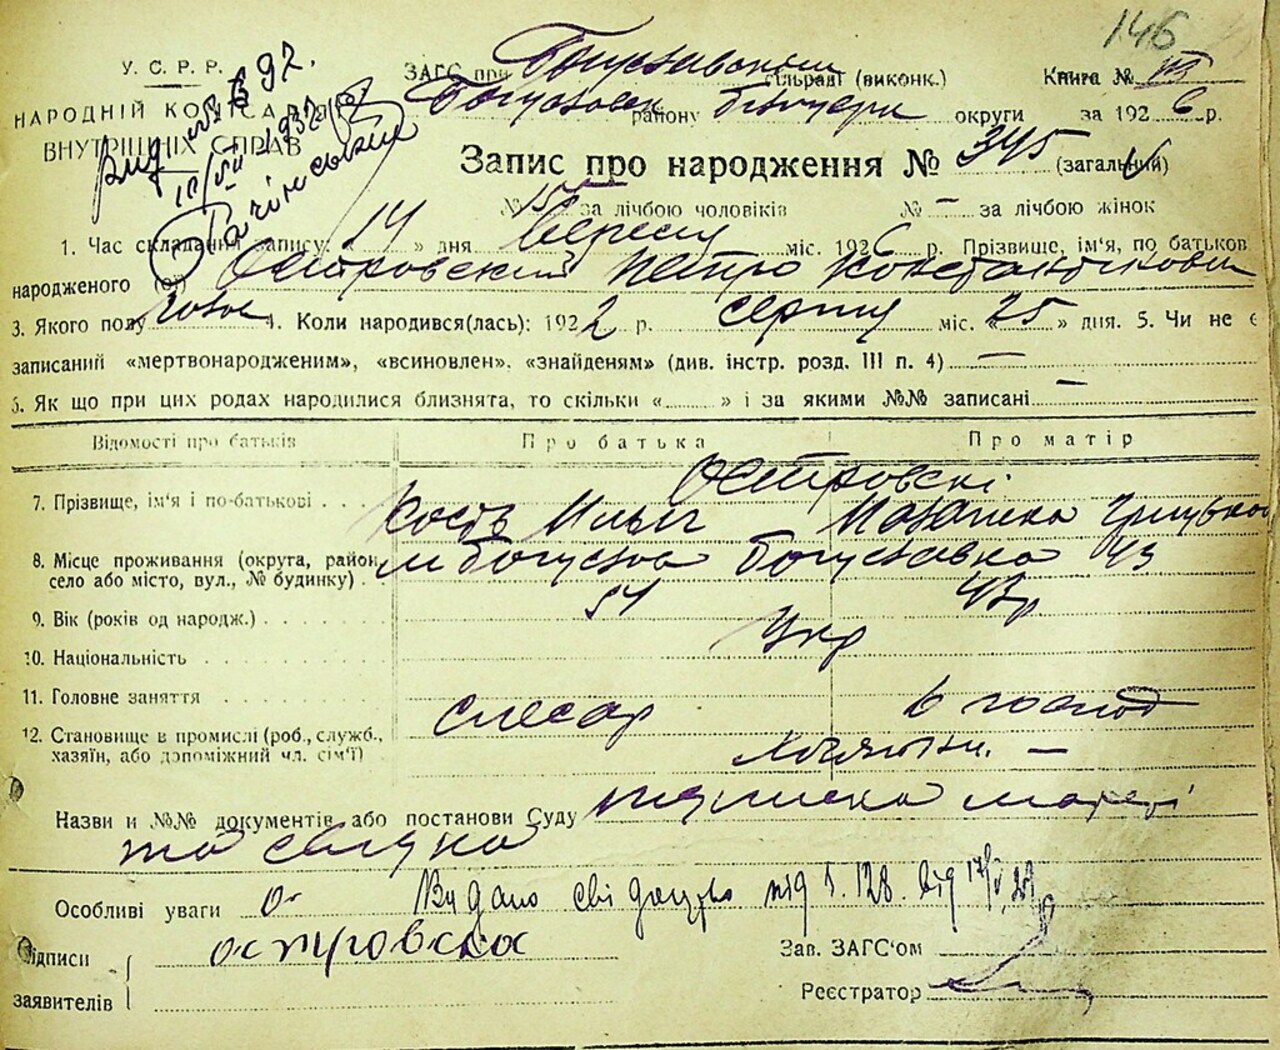 146
У. С. Р. Р.
НАРОДНІЙ КОМІСАРІЯТ
ВНУТРІШНІХ СПРАВ
ЗАГС при Богуславськім сільраді (виконк.) Книга № VII
Богуславськ району Білоцерк округи за 1926 р.
Запис про народження № 345 (загальний)
№ 157 за лічбою чоловіків № – за лічбою жінок
1. Час складання запису: «14» дня Вересня міс. 1926 р. Прізвище, ім'я, по батькові
народженого (ої) Островский Петро Константинович
3. Якого полу чолов 4. Коли народився(лась): 1922 р. серпня міс. «25» дня. 5. Чи не є
записаний «мертвонародженим», «всиновлен». «знайденям» (див. інстр. розд. III п. 4) —
6. Як що при цих родах народилися близнята, то скільки «......» і за якими №№ записані —
Відомості про батьків Про батька Про матір
Островскі
7. Прізвище, ім'я і по-батькові . . . Кость Ильч
8. Місце проживання (округа, район, м Богуслав Богуславка 43
село або місто, вул., № будинку) .
9. Вік (років од народж.) . . . . 51 43р
10. Національність . . . . Укр
11. Головне заняття . . . . слесар
12. Становище в промислі (роб., служб.,
хазяїн, або допоміжний чл. сім'ї) —
Назви и №№ документів або постанови Суду підписка матері
та свідка
Особливі уваги Видано свідоцтво під № 128. від 17/V
Підписи островска Зав. ЗАГС'ом
заявителів Реєстратор